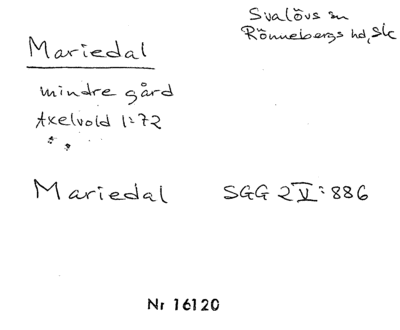 Svalövs sn
Rönnebergs hd, Slc
Mariedal
mindre gård
Axelvold 1:72
Mariedal SGG 2 V: 886
Nr 16120